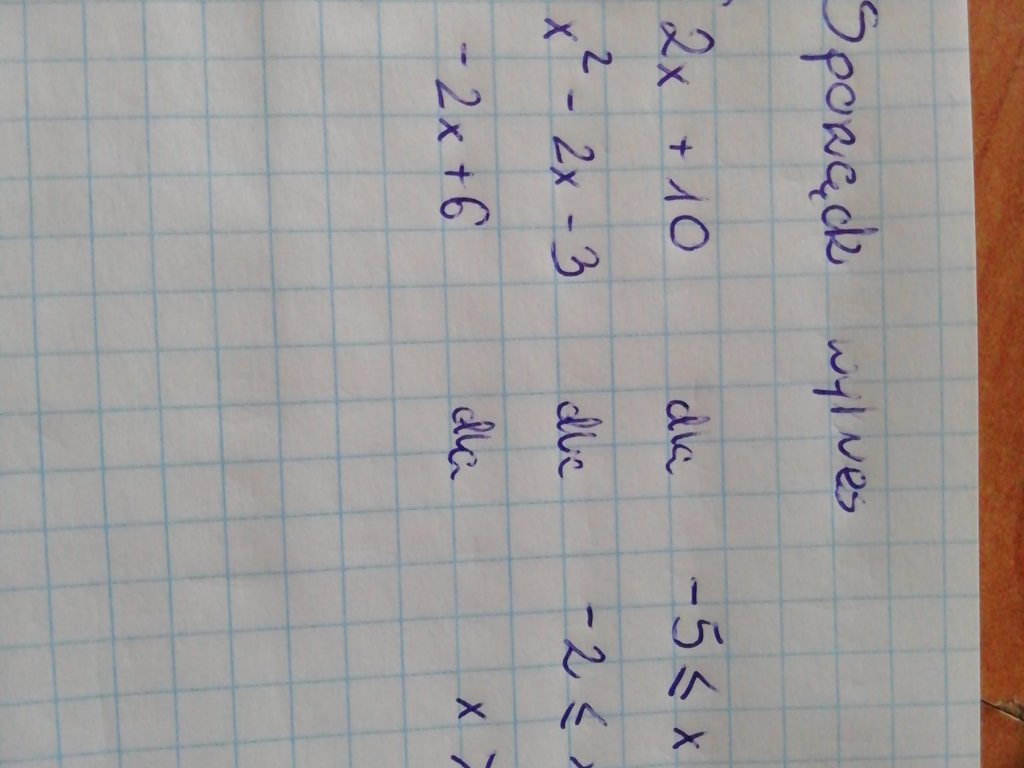 Sporządź wykres
2x + 10 dla -5 ≤ x
x² - 2x - 3 dla -2 ≤
-2x + 6 dla x >